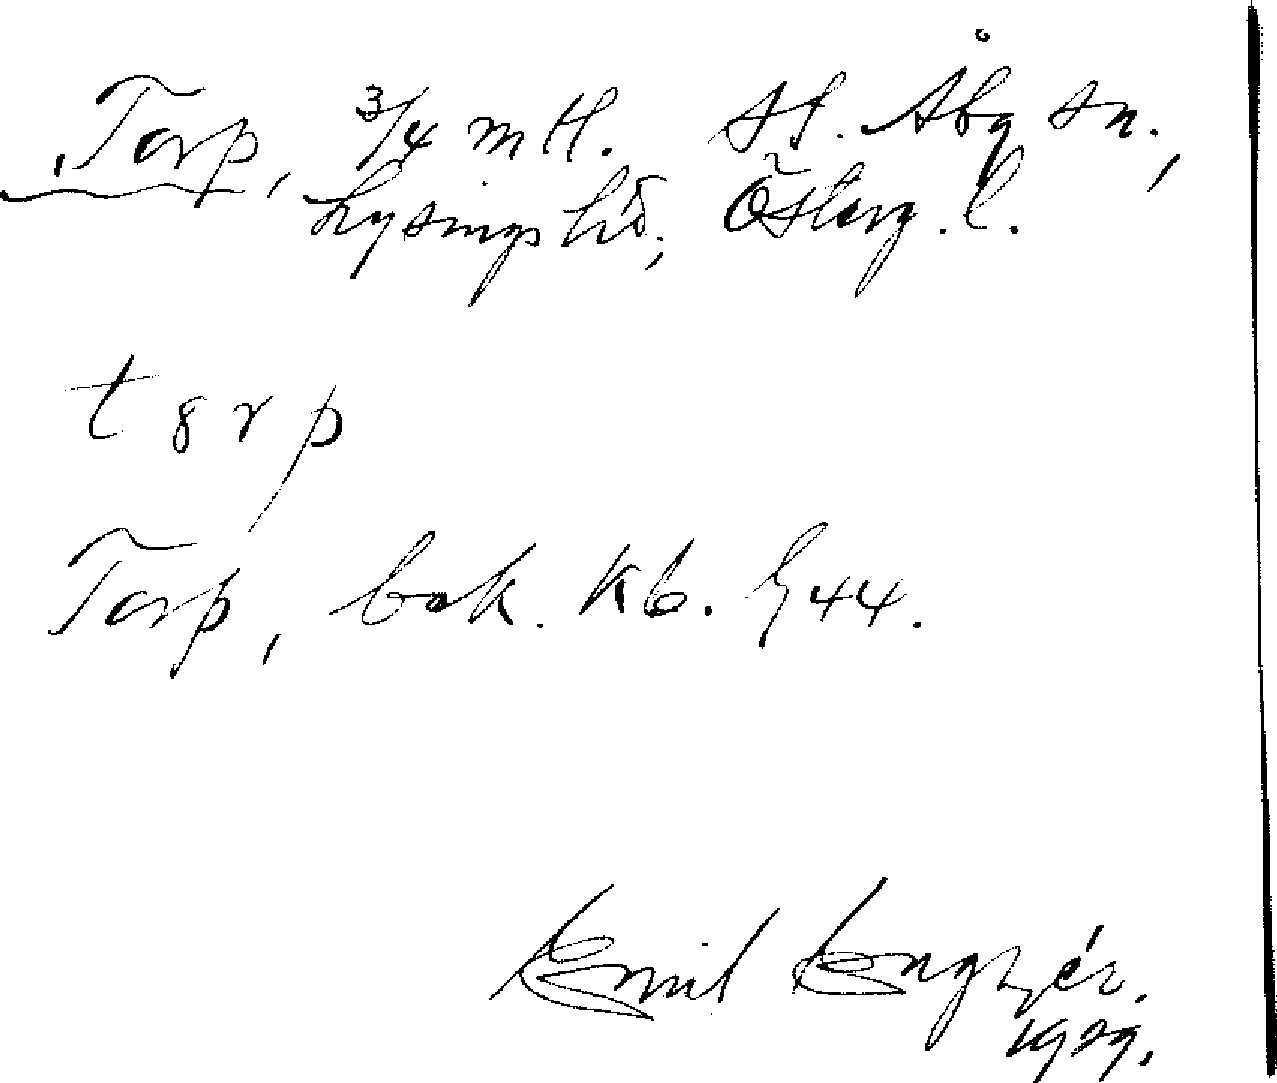 Torp, 3/4 mtl. St. Åby sn.,
Lysings hd, Österg. l.
t8rp
Torp, bok. Kb. h44.
Emil Engzér.
1929.